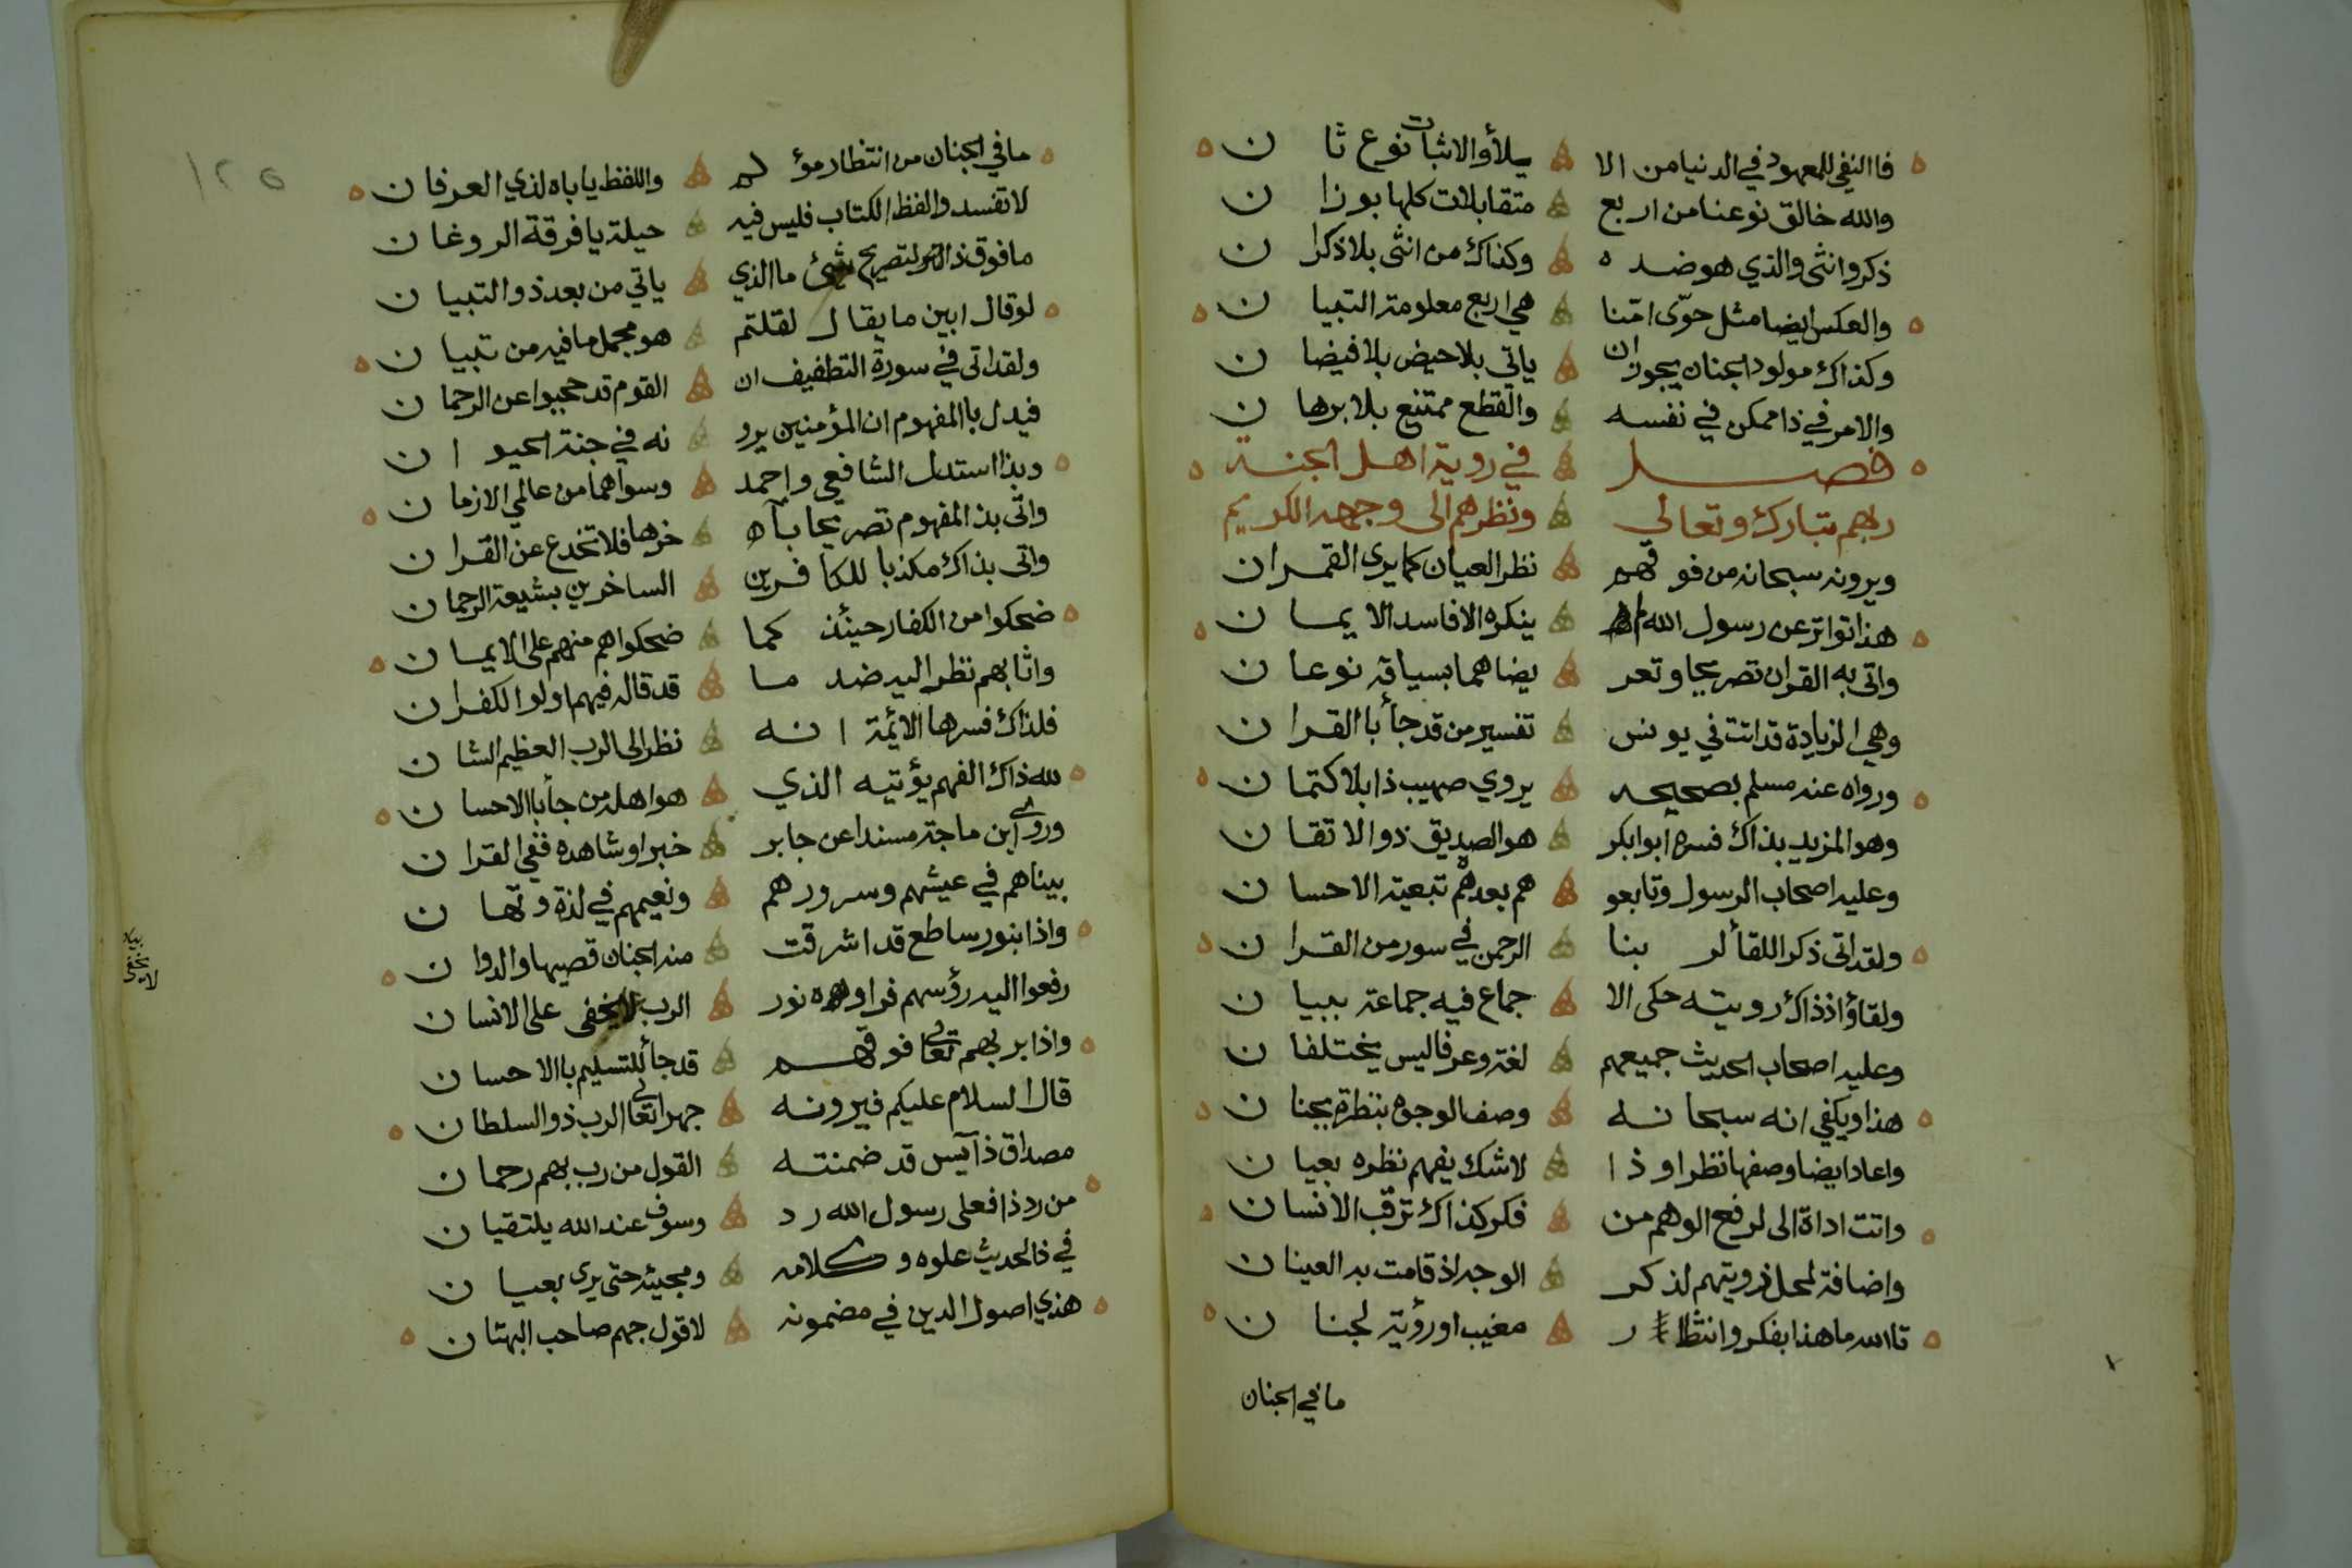 فاالنفي للمعهود في الدنيا من الا يلأد والاثبات نوع ثا ن
والله خالق نوعنا من اربع متقابلات كلها بوزا ن
ذكر وانثى والذي هو ضده وكذاك من انثى بلا ذكرا ن
والعكس ايضا مثل حوّى امّنا هي اربع معلومة التبيا ن
وكذاك مولود الجنان يجوز ان ياتي بلا حيض بلا فيضا ن
والامر في ذا ممكن في نفسه والقطع ممتنع بلا برها ن
فصل في روية اهل الجنة
ربهم تبارك وتعالى ونظرهم الى وجهه الكريم
ويرونه سبحانه من فوقهم نظر العيان كما يرى القمران
هذا تواتر عن رسول الله لم ينكره الا فاسد الايمان
واتى به القران تصريحا وتعر يضا هما بسياقه نوعان
وهي الزيادة قد اتت في يونس تفسير من قد جأ باالقران
ورواه عنه مسلم بصحيحه يروي صهيب ذا بلا كتمان
وهو المزيد بذاك فسره ابوابكر هو الصديق ذو الاتقان
وعليه اصحاب الرسول وتابعو هم بعدهم تبعية الاحسان
ولقد اتى ذكر اللقأ لر بنا الرحمن في سور من القران
ولقاؤه اذ ذاك رويته حكى الا جماع فيه جماعة ببيان
وعليه اصحاب الحديث جميعهم لغة وعرفا ليس يختلفان
هذا ويكفي انه سبحانه وصف الوجوه بنظرة بجنان
واعاد ايضا وصفها نظرا وذا لا شك يفهم نظره بعيان
واتت اداة الى لرفع الوهم من فكر كذاك ترقب الانسان
واضافة لمحل رويتهم لذكر الوجه اذ قامت به العينان
تاالله ما هذا بفكر وانتظار مغيب او رؤية لجنان
ما في الجنان
١٢٥
ما في الجنان من انتظار مؤلم واللفظ ياباه لذي العرفان
لا تفسدوا لفظ الكتاب فليس فيه حيلة يا فرقة الروغان
ما فوق ذا التصريح شئ ما الذي ياتي من بعد ذو التبيان
لو قال ابين ما يقال لقلتم هو مجمل ما فيه من تبيان
ولقد اتى في سورة التطفيف ان القوم قد حجبوا عن الرحمان
فيدل باالمفهوم ان المؤمنين يرو نه في جنة الحيوان
وبذا استدل الشافعي واحمد وسواهما من عالمي الازمان
واتى بذا المفهوم تصريحا بآ خرها فلا تخدع عن القران
واتى بذاك مكذبا للكافرين الساخرين بشيعة الرحمان
ضحكوا من الكفار حينئذ كما ضحكوا هم منهم على الايمان
واثابهم نظر اليه ضد ما قد قاله فيهم اولوا الكفران
فلذاك فسرها الائمة انه نظر الى الرب العظيم الشان
لله ذاك الفهم يؤتيه الذي هو اهله من جأ باالاحسان
وروى ابن ماجة مسندا عن جابر خبرا وشاهده ففي القران
بيناهم في عيشهم وسرورهم ونعيمهم في لذة وتهان
واذا بنور ساطع قد اشرقت منه الجنان قصيها والدوان
رفعوا اليه رؤسهم فراوه نور الرب لا يخفى على الانسان
واذا بربهم تعالى فوقهم قد جأ للتسليم باالاحسان
قال السلام عليكم فيرونه جهرا تعالى الرب ذو السلطان
مصداق ذا آيس قد ضمنته القول من رب بهم رحمان
من رد ذا فعلى رسول الله رد وسوف عند الله يلتقيان
في ذا الحديث علوه وكلامه ومجيئه حتى يرى بعيان
هذي اصول الدين في مضمونه لا قول جهم صاحب البهتان
لا يخفى